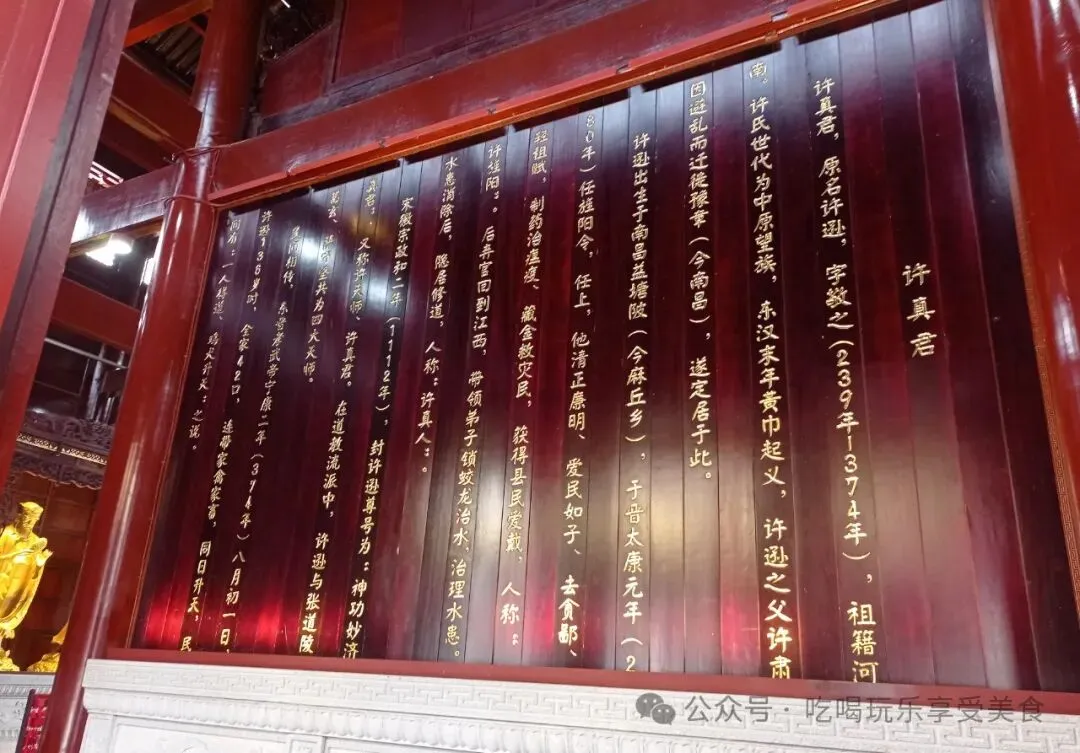 许真君
许真君，原名许逊，字敬之(239年—374年)，祖籍河
南。许氏世代为中原望族，东汉末年黄巾起义，许逊之父许肃
因避乱而迁徙豫章(今南昌)，遂定居于此。
许逊出生于南昌益塘陂(今麻丘乡)，于晋太康元年(2
80年)任旌阳令，任上，他清正廉明、爱民如子、去贪鄙、
轻祖赋，制药治瘟疫、藏金救灾民，获得县民爱戴，人称：
许旌阳：。后弃官回到江西，带领弟子锁蛟龙治水、治理水患。
水患消除后，隐居修道，人称：许真人：。
宋徽宗政和二年(1112年)，封许逊尊号为：神功妙济
真君：，又称许天师、许真君。在道教流派中，许逊与张道陵
葛玄、坚共为四大天师。
民间相传，东晋孝武帝宁康二年(374年)八月初一日，
许逊136岁时，全家42口，连带家禽家畜，同日升天，民
间有：一人得道，鸡犬升天：之说。
公众号·吃喝玩乐享受美食